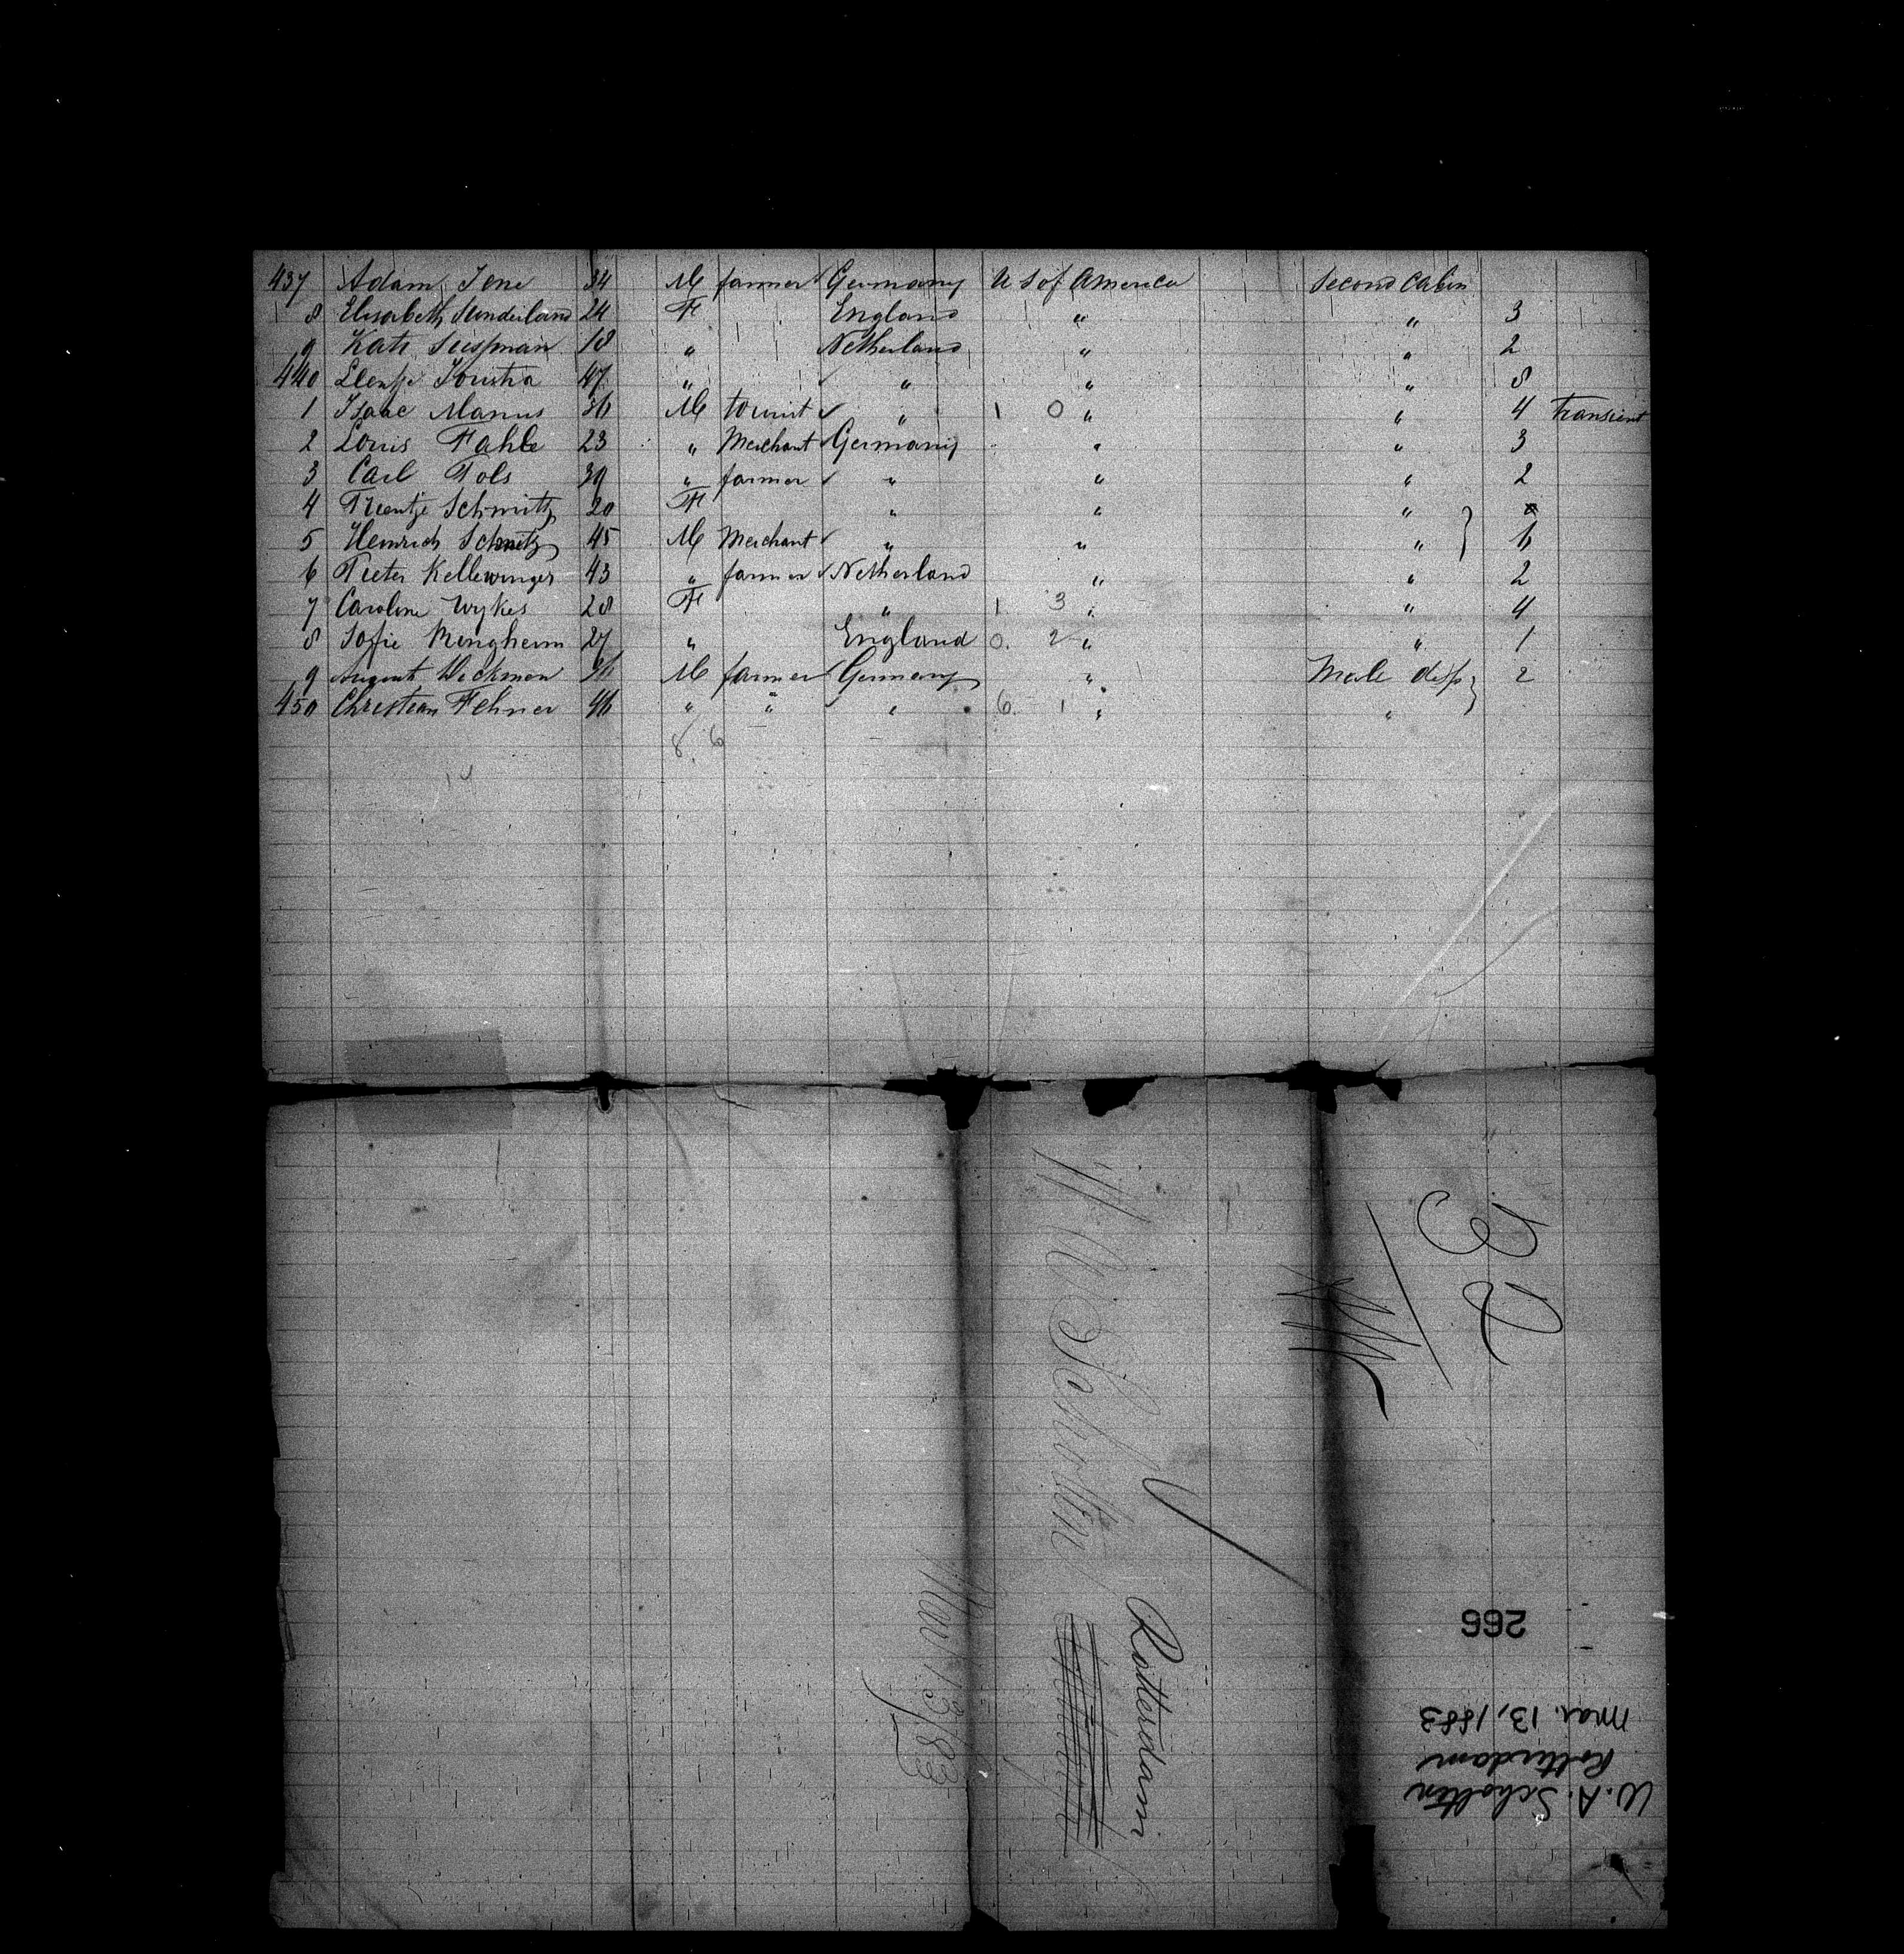 437 Adam Jene 34 M farmer Germany U S of America Second Cabin
8 Elisabeth Sunderland 24 F England " " 3
9 Kate 18 " Netherland " " 2
440 Joustra 47 " " " " 8
1 Isaac Manus 36 M tourist " 1 0 " " 4 Transient
2 Louis Fahle 23 " Merchant Germany " " 3
3 Carl Pols 39 " farmer " " " 2
4 Trientje Schmitz 20 F " " "
5 Heinrich Schmitz 45 M Merchant " " " 6
6 Pieter Kellewinger 43 " farmer Netherland " " 2
7 Caroline Wykes 28 F " 1. 3 " " 4
8 Sofie Mengheim 27 " England 0. 2 " " 1
9 August Wickman 36 M farmer Germany " Male disp 2
450 Christian Fehner 46 " " " 6. 1 " "
8. 6
14
32
W A Scholten
Rotterdam
Mar 13/83
266
Mar. 13, 1883
Rotterdam
W. A. Scholten